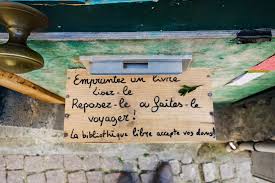 Empruntez un livre
Lisez-le
Reposez-le ou faites-le
voyager !
La bibliothèque libre accepte vos dons!